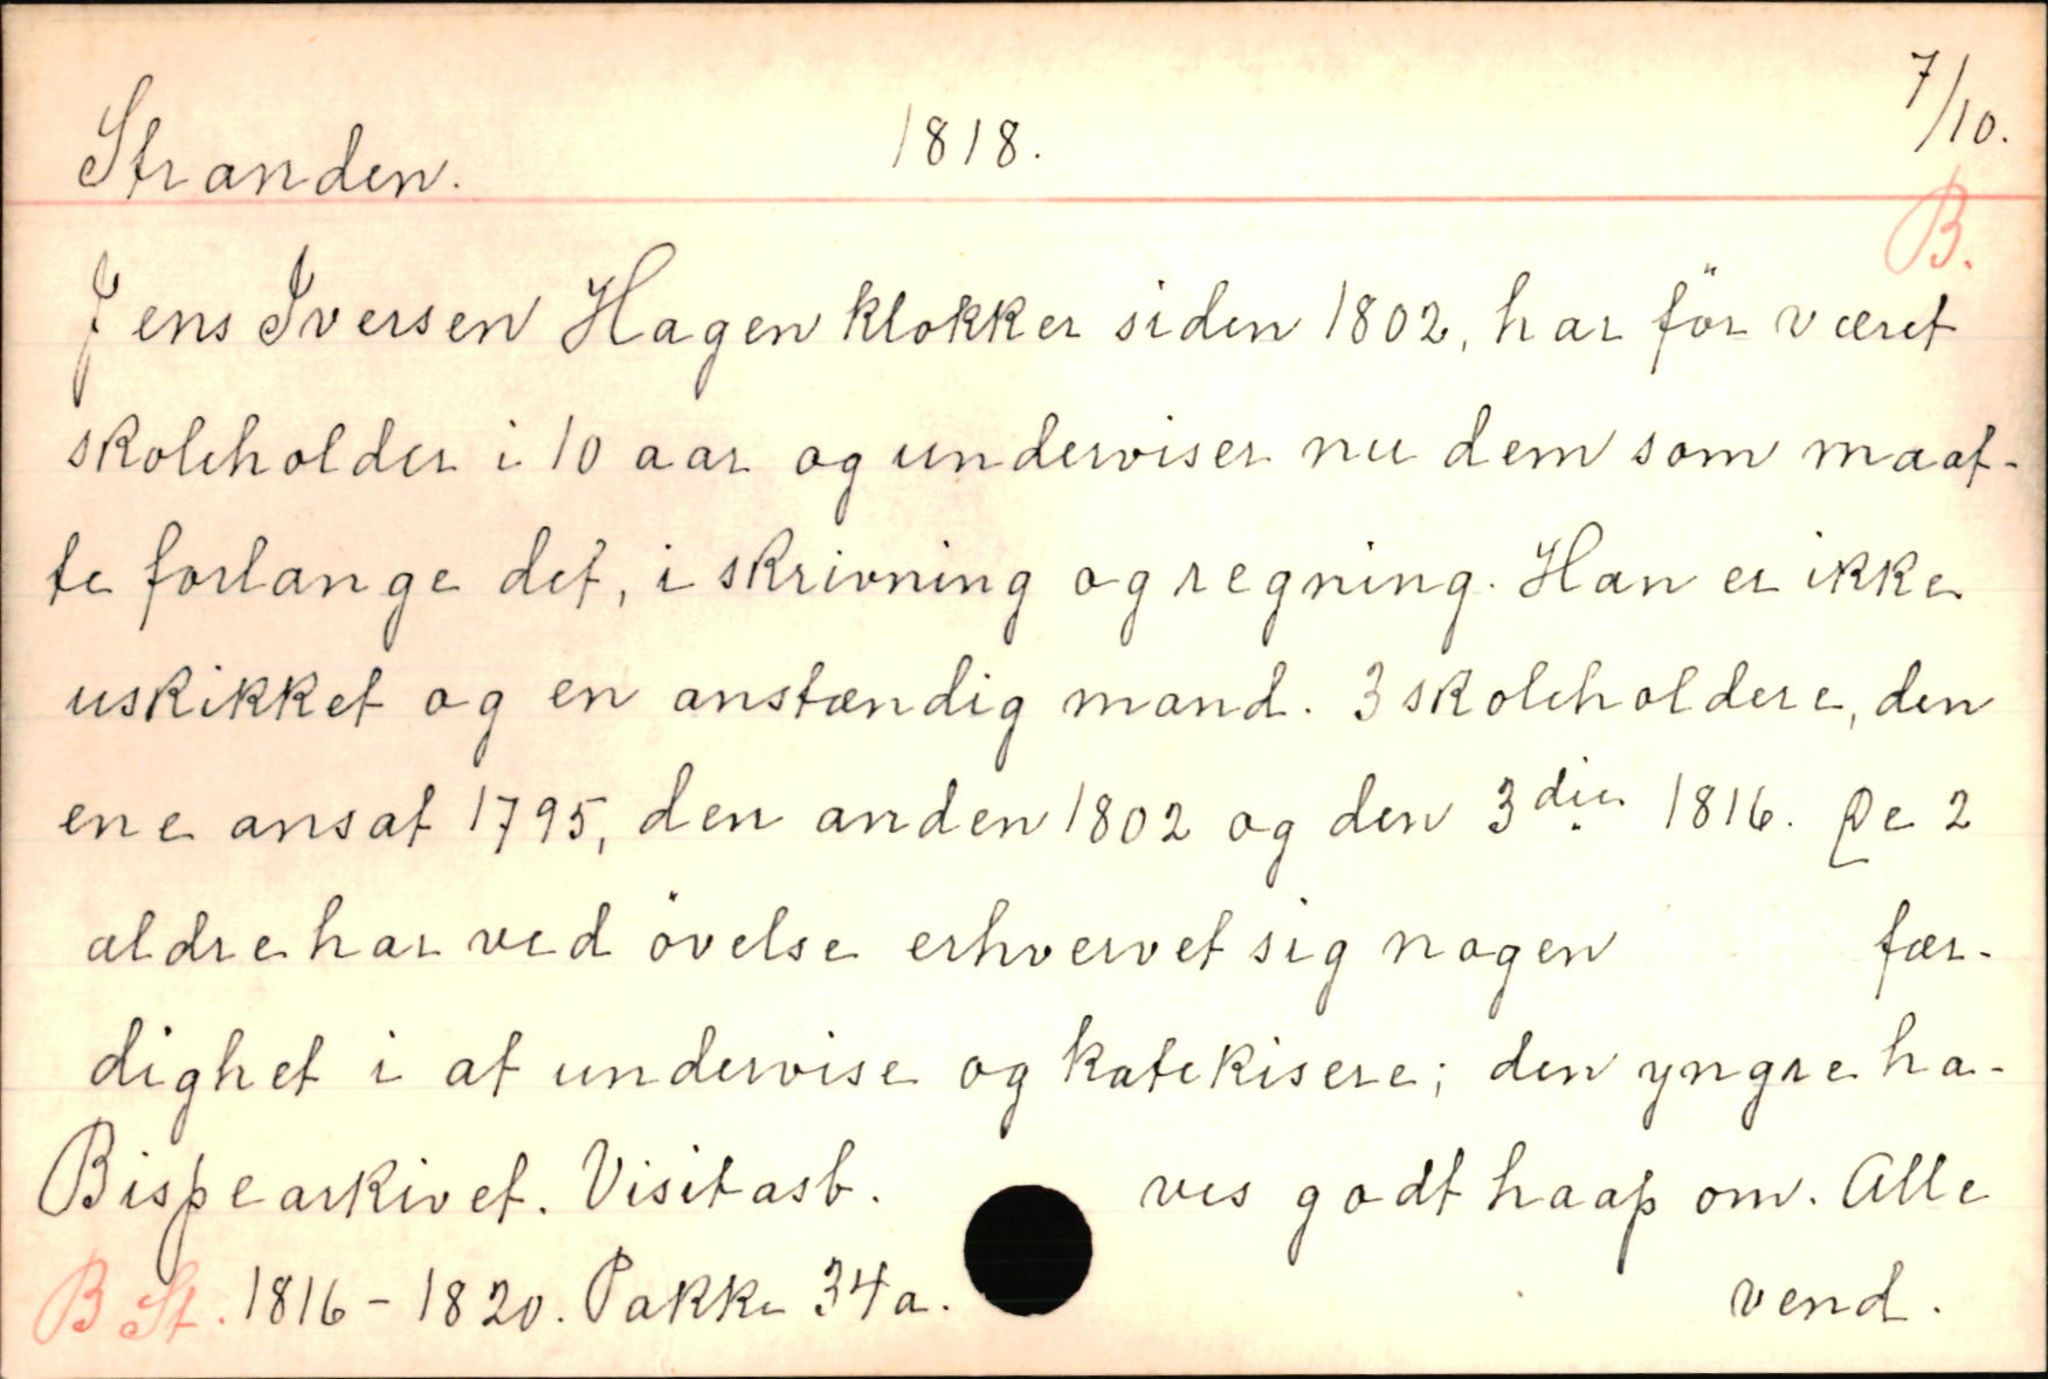 7/10.
Stranden. 1818.
B.
Jens Iversen Hagen klokker siden 1802, har för været
skoleholder i 10 aar og underviser nu dem som maat-
te forlange det, i skrivning og regning. Han er ikke
uskikket og en anstændig mand. 3 skoleholdere, den
ene ansat 1795, den anden 1802 og den 3die 1816. De 2
ældre har ved övelse erhvervet sig nogen fær-
dighet i at undervise og katekisere; den yngre ha-
Bispearkivet. Visitasb. ves godt haap om. Alle
B St. 1816-1820. Pakke 34a. vend.